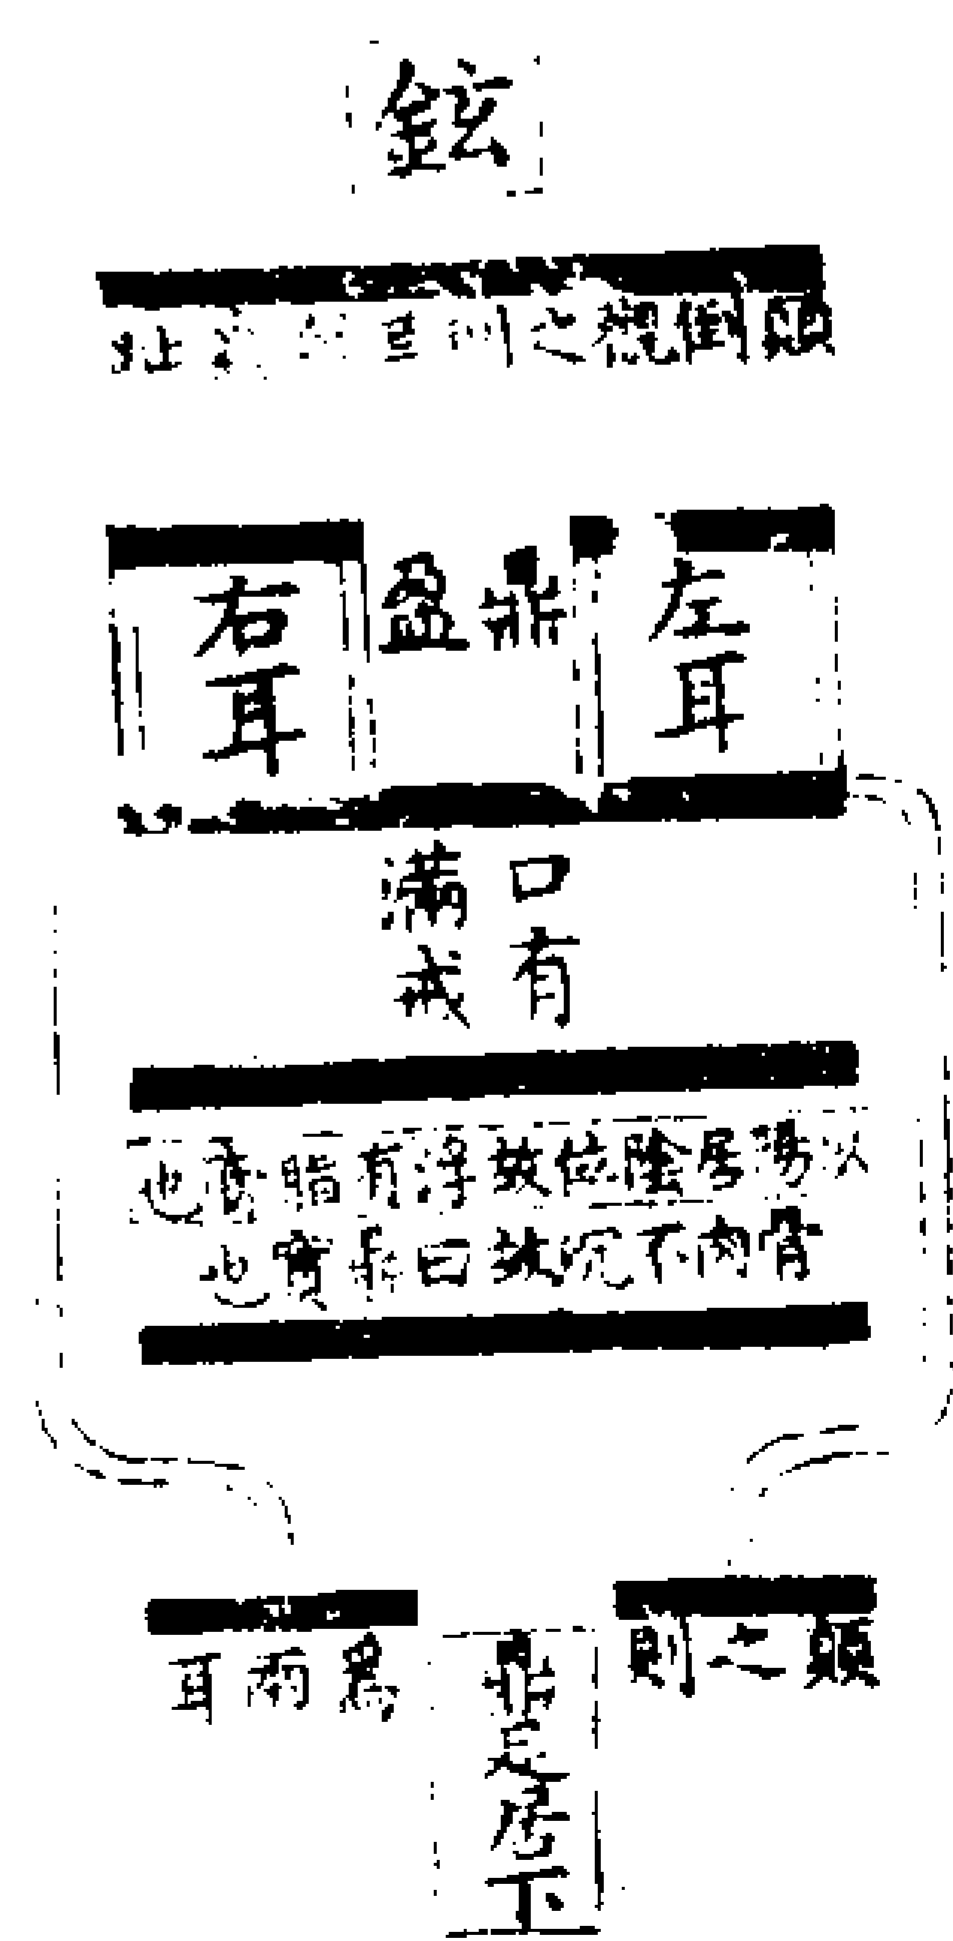 鉉
顛倒視之則
左耳
鼎盈
右耳
口有
滿戒
以陽居陰位故浮有脂膏也
骨肉下沉故曰鼎實也
顛之則
鼎足居下
爲兩耳